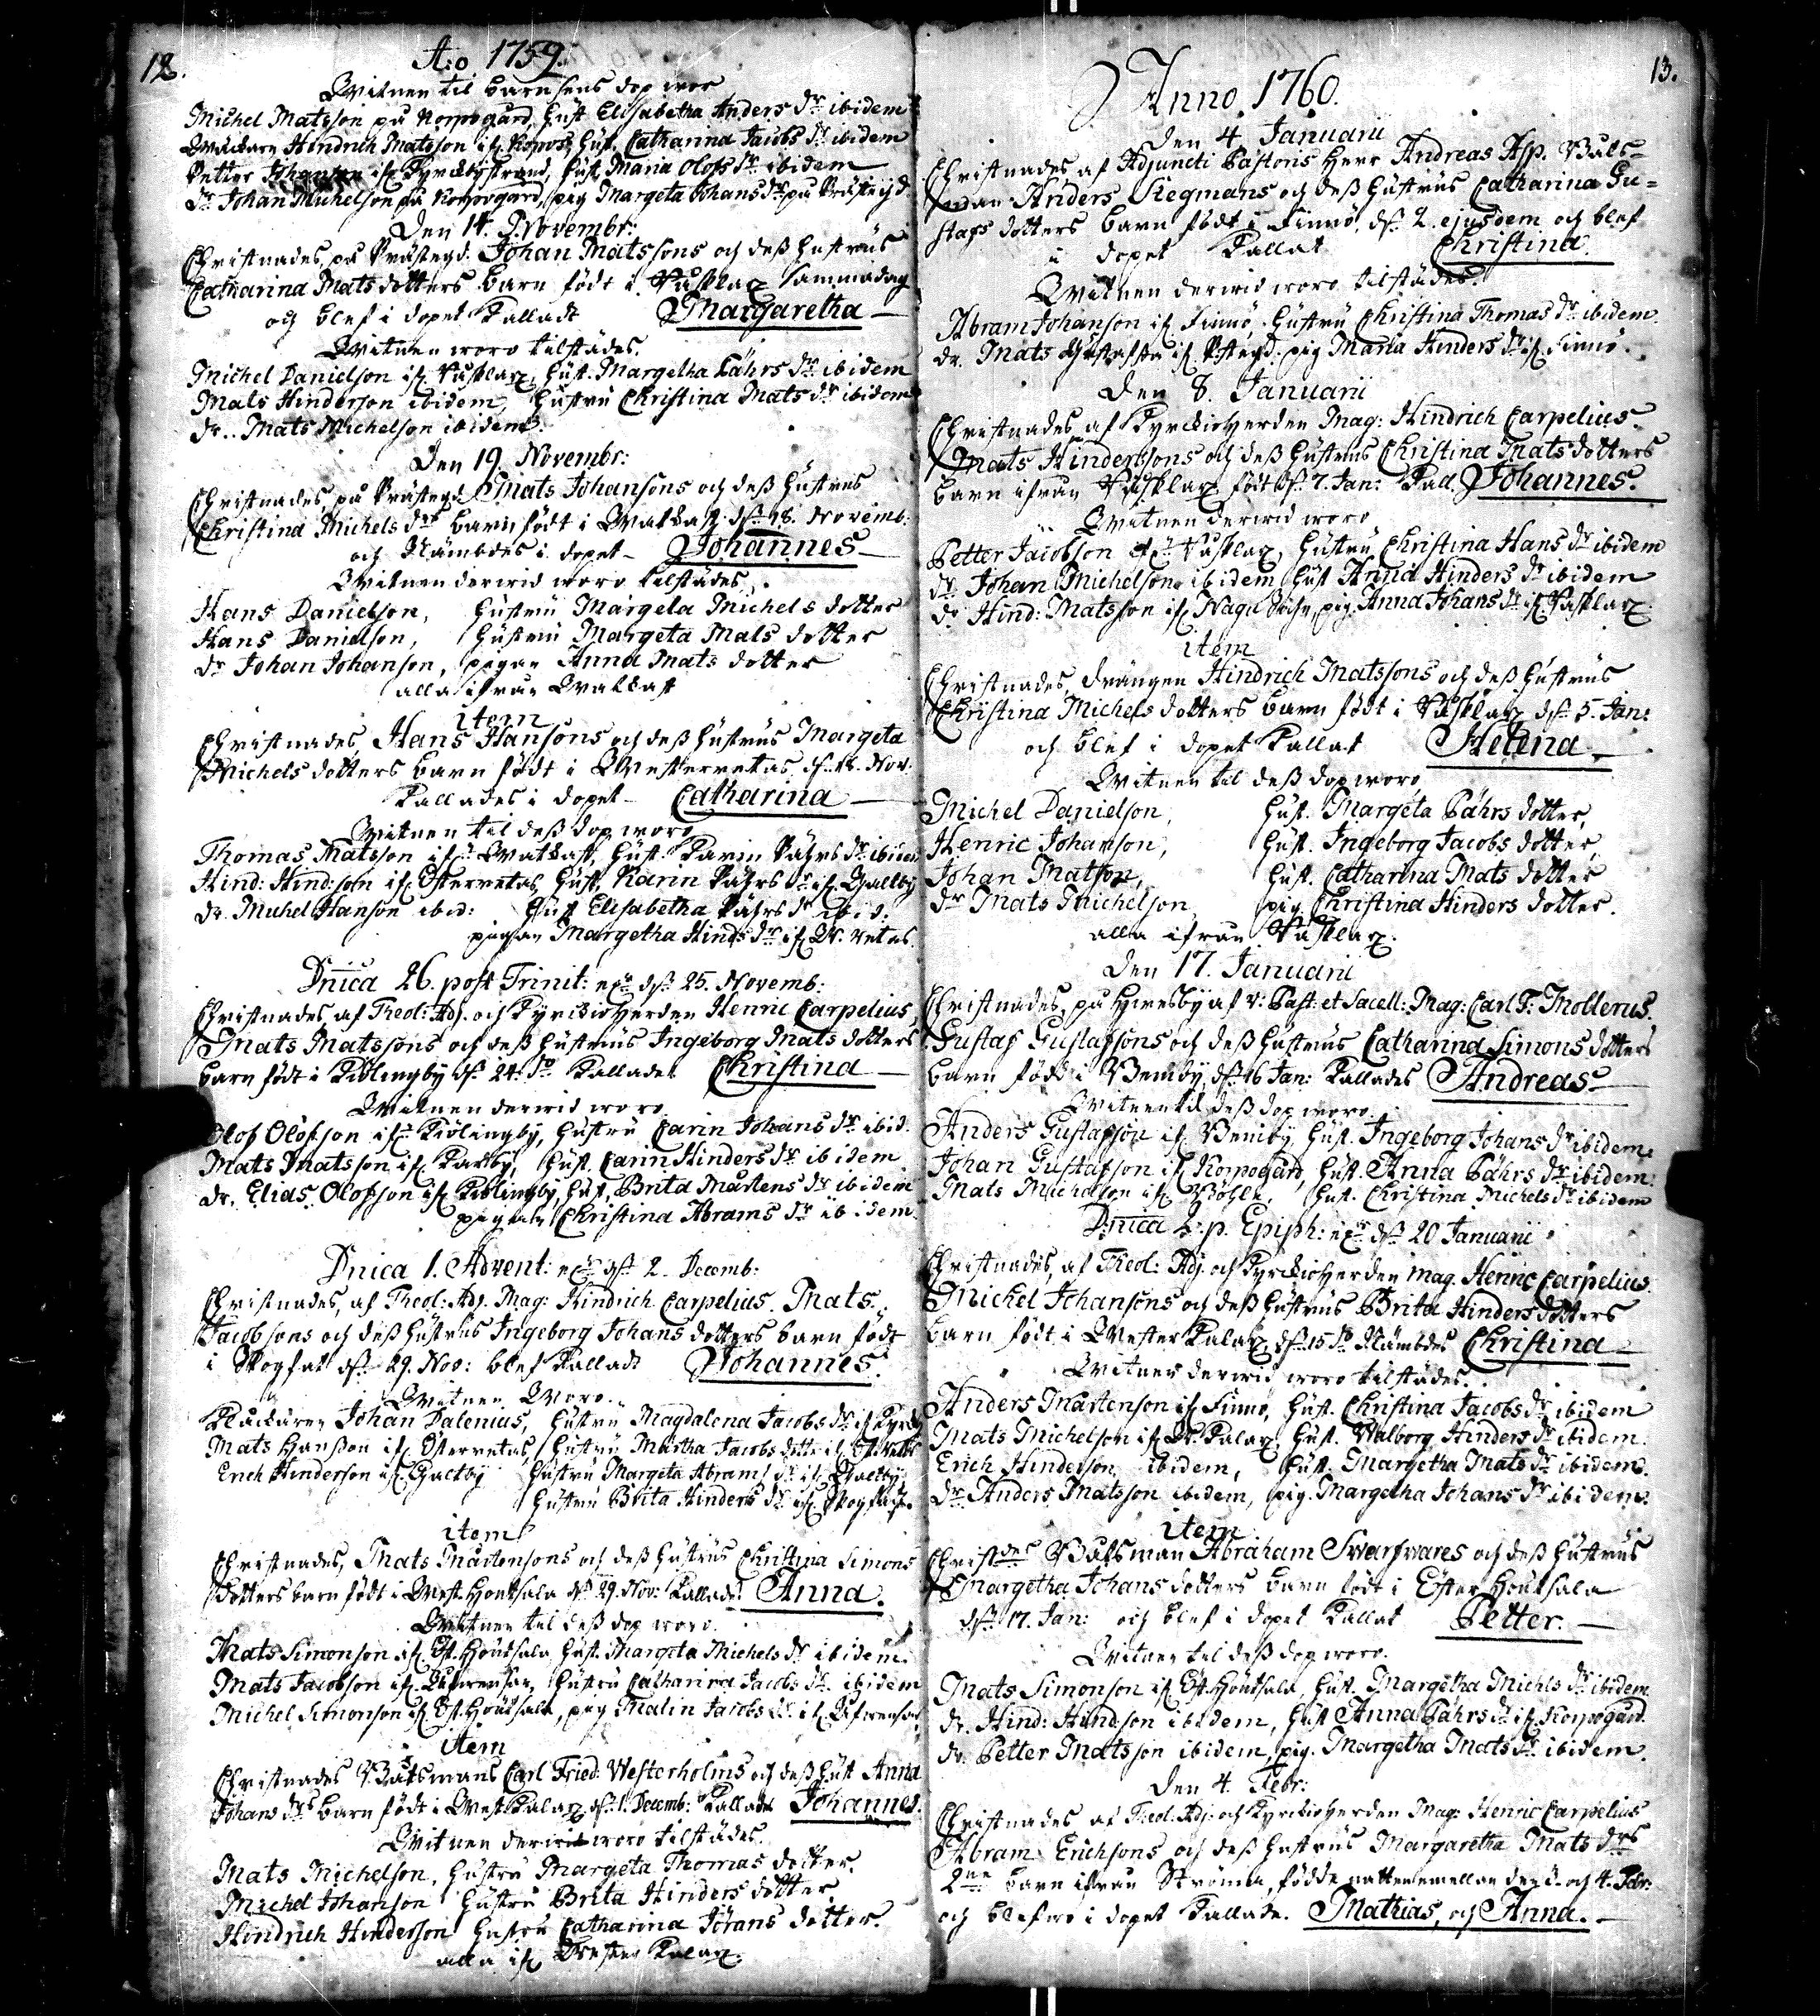 12.
A:o 1759.
Witnen til barnsens dop wor
Michel Matsson på Korpogård, hust. Elisabetha Anders dr ibidem
Hindrich Matsson if. Korpo, hust. Catharina Jacobs dr ibidem
Petter Johanson if. Kyrckiostrand, hust. Maria Olofs dr ibidem
Dr. Johan Michelson på Korpogård, pig. Margeta Johans dr på Prästegd
Den 14. Novembr:
Christnades, på Prästegd. Johan Matssons och dess hustrus
Catharina Mats dotters barn födt i Rusklax samma dag
och blef i dopet kalladt Margaretha
Witnen woro tilstädes.
Michel Danielson if. Rusklax, hust. Margetha Påhrs dr ibidem
Mats Hinderson ibidem, hustru Christina Mats dr ibidem
dr. Mats Michelson ibidem.
Den 19. Novembr:
Christnades, på Prästegd. Mats Johansons och dess hustrus
Christina Michels drs barn födt i Wattkast ds. 18. Novemb.
och Nämbdes i dopet Johannes
Witnen derwid woro tilstädes.
Hans Danielson, hustru Margeta Michels dotter
Hans Danielson, hustru Margeta Mats dotter
dr Johan Johanson, pigan Anna Mats dotter
alla ifrån Wattkast
item
Christnades, Hans Hansons och dess hustrus Margeta
Michels dotters barn födt i Westerretas Nov.
kallades i dopet Catharina
Witnen til dess dop woro
Thomas Matsson ifrån Wattkast, hust. Karin Påhrs dr ibidem
Hind: Hind:son if. Österretas, hust. Karin Påhrs dr if. Galtby
dr. Michel Hanson ibid: hust Elisabetha Påhrs dr ibid:
pigan Margetha Hinds dr if. W. retas.
Dnica 26. post Trinit: ds. 25. Novemb:
Christnades af Theol: Adj. och Kyrckioherden Henric Carpelius,
Mats Matssons och dess hustrus Ingeborg Mats dotters
barn födt i Kiölingby ds. 24. do kallades Christina
Witnen derwid woro
Olof Olofson ifrån Kiölingby, hustru Carin Johans dr ibid.
Mats Matsson if. Karby, hust. Carin Hinders dr ibidem
dr. Elias Olofsson if. Kiölingby, hust. Brita Mårtens dr ibidem
pigan Christina Abrams dr ibidem
Dnica 1. Advent: ds. 2. Decemb:
Christnades, af Theol: Adj. Mag: Hindrich Carpelius. Mats
Jacobsons och dess hustrus Ingeborg Johans dotters barn födt
i Skogfat ds. 29. Nov: blef kalladt Johannes.
Witnen Woro.
Klockaren Johan Dalenius, hustru Magdalena Jacobs dr if. Kyrck
Mats Hansson if. Österretas, hustru Martha Jacobs dotter if.
Erich Hinderson if. Galtby hustru Margeta Abrams dr if. Galtby
hustru Brita Hinders dr if. Skogfat.
item
Christnades, Mats Mårtensons och dess hustrus Christina Simons
dotters barn födt i West. Houtsala ds. 29. Nov: kallades Anna.
Witnen til dess dop woro.
Mats Simonson if. Öst. Houtsala, hust. Margeta Michels dr ibidem.
Mats Jacobson if. hustru Catharina Jacobs dr ibidem
Michel Simonson if. Öst. Houtsala, pig. Malin Jacobs dr if.
item
Christnades Båtsmans Carl Fried: Westerholms och dess hust Anna
Johans drs barn födt i West. Kalax ds. 1. Decemb: kallades Johannes.
Witnen derwid woro tilstädes.
Mats Michelson, hustru Margeta Thomas dotter.
Michel Johanson hustru Brita Hinders dotter
Hindrich Hinderson hustru Catharina Jörans dotter.
alla if. Wester Kalax.
13.
Anno 1760.
Den 4. Januarii
Christnades af Adjuncti Pastoris Herr Andreas Asp. Båts=
man Anders Stegmans och dess hustrus Catharina Gu=
stafs dotters barn födt i Finnö, ds. 2. ejusdem och blef
i dopet kallat Christina.
Witnen derwid woro tilstädes.
Abram Johanson if. Finnö, hustru Christina Thomas dr ibidem.
dr. Mats Gustafson if. Prstegd. pig. Maria Hinders dr if. Finnö.
Den 8. Januarii
Christnades af Kyrckioherden Mag: Hindrich Carpelius.
Mats Hinderssons och dess hustrus Christina Mats dotters
barn ifrån Rusklax födt ds. 7. Jan: kall. Johannes.
Witnen derwid woro
Petter Jacobson if. Rusklax, hustru Christina Hans dr ibidem
dr. Johan Michelson ibidem, hust Anna Hinders dr ibidem
dr. Hind: Matsson if. Nagu pig. Anna Johans dr if. Rusklax.
item
Christnades, drängen Hindrich Matssons och dess hustrus
Christina Michels dotters barn födt i Rusklax ds. 5. Jan:
och blef i dopet kallat Helena
Witnen til dess dop woro
Michel Danielson, hust. Margeta Påhrs dotter,
Henric Johanson, hust. Ingeborg Jacobs dotter,
Johan Matson, hust. Catharina Mats dotter
dr Mats Michelson, pig. Christina Hinders dotter.
alla ifrån Rusklax.
Den 17. Januarii
Christnades, på Hwesby af V: Past: et Sacell: Mag: Carl F: Mollerus.
Gustaf Gustafsons och dess hustrus Catharina Simons dotters
barn född i Wemby, ds. 16 Jan: kallades Andreas.
Witnen til dess dop woro.
Anders Gustafson if. Wemby, hust. Ingeborg Johans dr ibidem.
Johan Gustafson if. Korpogård, hust. Anna Påhrs dr ibidem.
Mats Michelson if. hust. Christina Michels dr ibidem
Dnica 2. p. Epiph: ds. 20 Januarii
Christnades, af Theol: Adj. och Kyrckioherden Mag. Henric Carpelius.
Michel Johansons och dess hustrus Brita Hinders dotters
barn födt i Wester Kalax, ds. 15 do Nämbdes Christina
Witnen derwid woro tilstädes.
Anders Mårtenson if. Finnö, hust. Christina Jacobs dr ibidem
Mats Michelson if. W. Kalax, hust. Walborg Hinders dr ibidem.
Erich Hinderson ibidem, hust. Margetha Mats dr ibidem.
dr Anders Matsson ibidem, pig. Margetha Johans dr ibidem.
item
Christdes Båtsman Abraham Swarfwares och dess hustrus
Margetha Johans dotters barn födt i Öster Houtsala
ds. 17. Jan: och blef i dopet kallat Petter.
Witnen til dess dop woro.
Mats Simonson if. Öst. Houtsala, hust. Margetha Michls dr ibidem.
dr. Hind: Hindson ibidem, hust Anna Påhrs dr if. Korpogård.
dr. Petter Matsson ibidem, pig. Margetha Mats dr ibidem.
Den 4. Febr:
Christnades af Theol. Adj. och Kyrckioherden Mag: Henric Carpelius
Abram Erichsons och dess hustrus Margaretha Mats drs
2ne barn ifrån Strömma, födde natten emellan den 3. och 4. Febr:
och blefwo i dopet kallade. Mathias, och Anna.